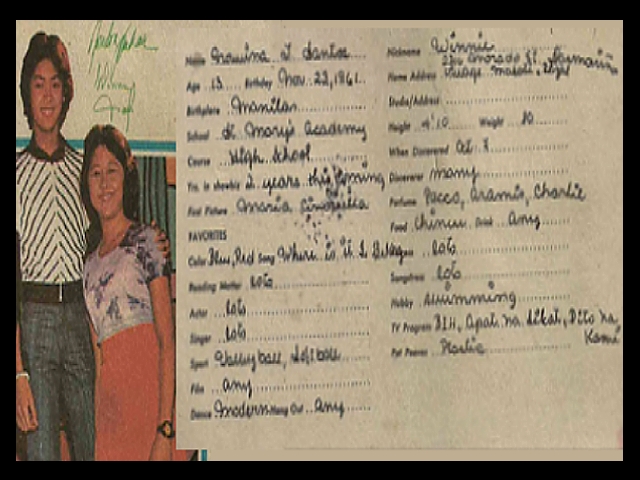 Winny
Name Rowina T. Santos
Age 13 Birthday Nov. 23, 1961
Birthplace Manila
School St. Mary's Academy
Course High School
Yrs. in showbiz 2 years this coming
First Picture Maria
FAVORITES
Color Blue, Red Song Where is it I Belong
Reading Matter lots
Actor lots
Singer lots
Sport Volleyball, Softball
Film any
Dance Modern Hang Out Any
Nickname Winnie
Home Address Village Makati, Rizal
Studio/Address
Height 4'10 Weight 80
When Discovered at 8
Discoverer many
Perfume Pacco, Aramis, Charlie
Food Chinese Drink Any
lots
Songstress lots
Hobby swimming
TV Program BIH, Apat na Sikat, Dito na
Kami
Pet Peeves Plastic